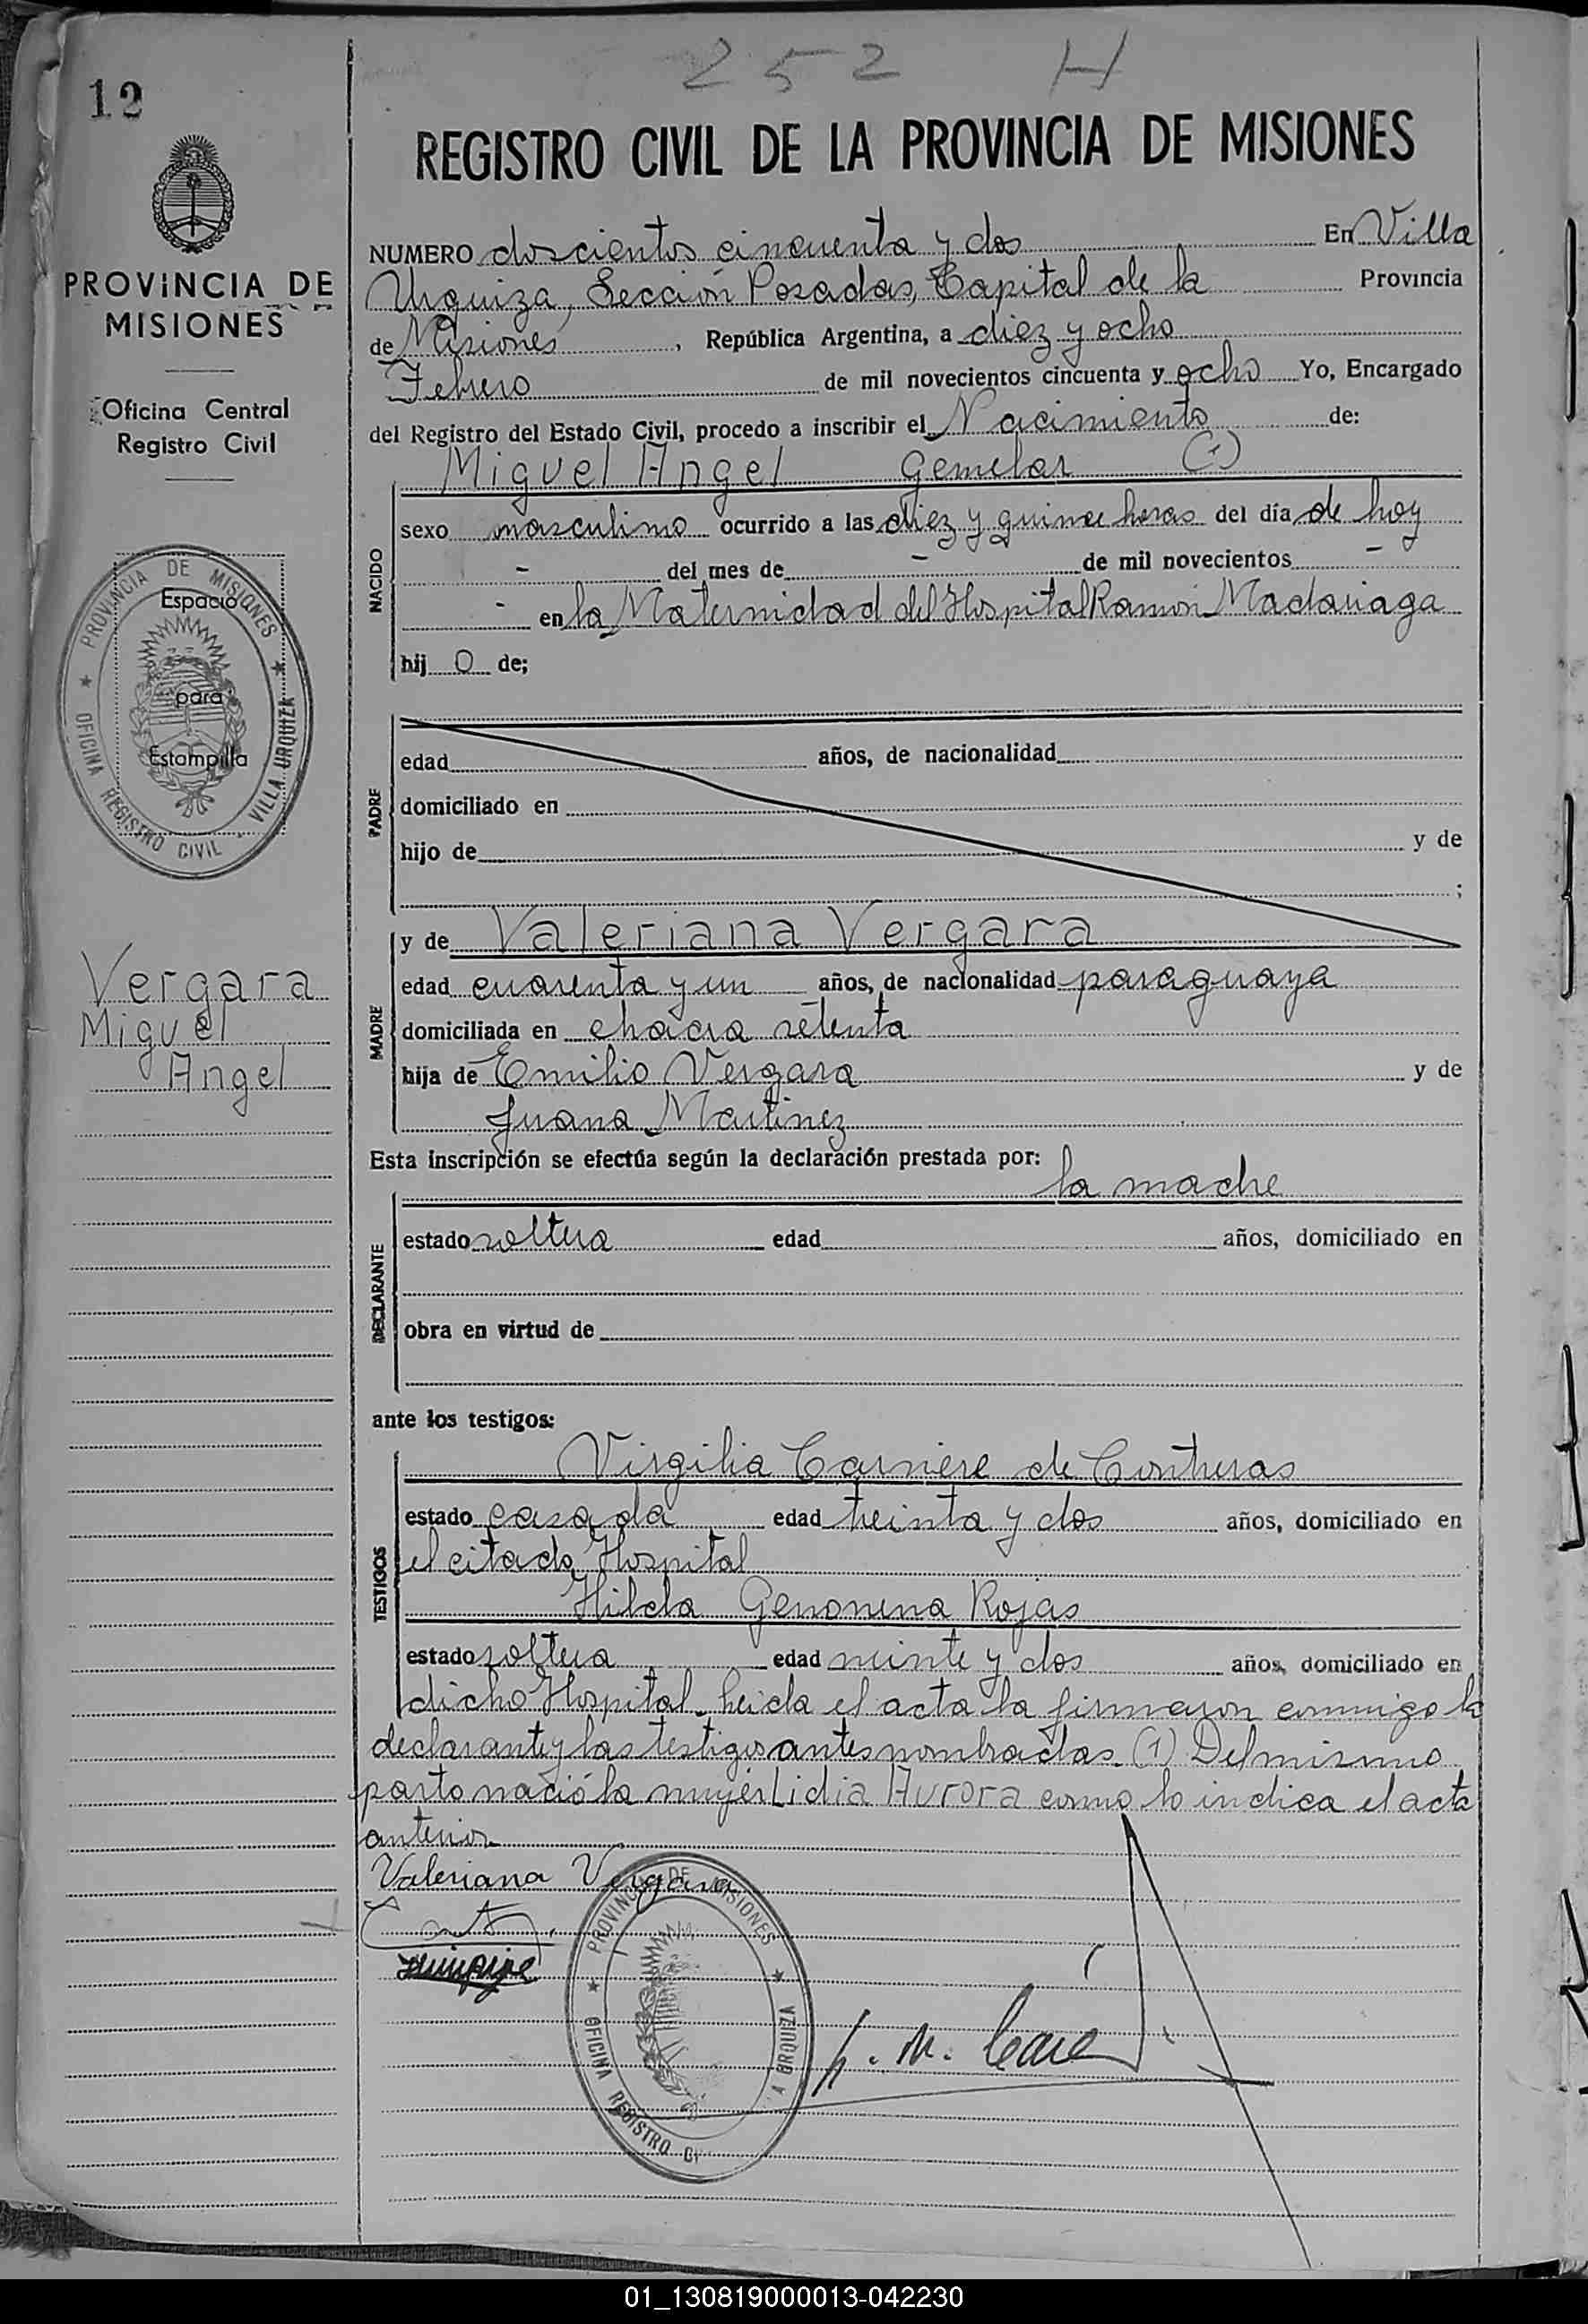 252 H
12
REGISTRO CIVIL DE LA PROVINCIA DE MISIONES
PROVINCIA DE
MISIONES
Oficina Central
Registro Civil
PROVINCIA DE MISIONES
OFICINA REGISTRO CIVIL VILLA URQUIZA
Espacio
para
Estampilla
Vergara
Miguel
Angel
NUMERO doscientos cincuenta y dos En Villa
Urquiza, Sección Posadas, Capital de la Provincia
de Misiones, República Argentina, a diez y ocho
Febrero de mil novecientos cincuenta y ocho Yo, Encargado
del Registro del Estado Civil, procedo a inscribir el Nacimiento de:
Miguel Angel Gemelar (1)
NACIDO
sexo masculino ocurrido a las diez y quince horas del día de hoy
- del mes de - de mil novecientos -
- en la Maternidad del Hospital Ramón Madariaga
hij o de;
PADRE
edad años, de nacionalidad
domiciliado en
hijo de y de
;
MADRE
y de Valeriana Vergara
edad cuarenta y un años, de nacionalidad paraguaya
domiciliada en chacra setenta
hija de Emilio Vergara y de
Juana Martinez
Esta inscripción se efectúa según la declaración prestada por:
la madre
DECLARANTE
estado soltera edad años, domiciliado en
obra en virtud de
ante los testigos:
TESTIGOS
Virgilia Carriere de Contreras
estado casada edad treinta y dos años, domiciliado en
el citado Hospital
Hilda Rojas
estado soltera edad veinte y dos años, domiciliado en
dicho Hospital. Leida el acta la firmaron conmigo la
declarante y las testigos antes nombradas. (1) Del mismo
parto nació la mujer Lidia Aurora como lo indica el acta
anterior.
Valeriana Vergara
PROVINCIA DE MISIONES
OFICINA REGISTRO CI A URQUIZA
01_130819000013-042230